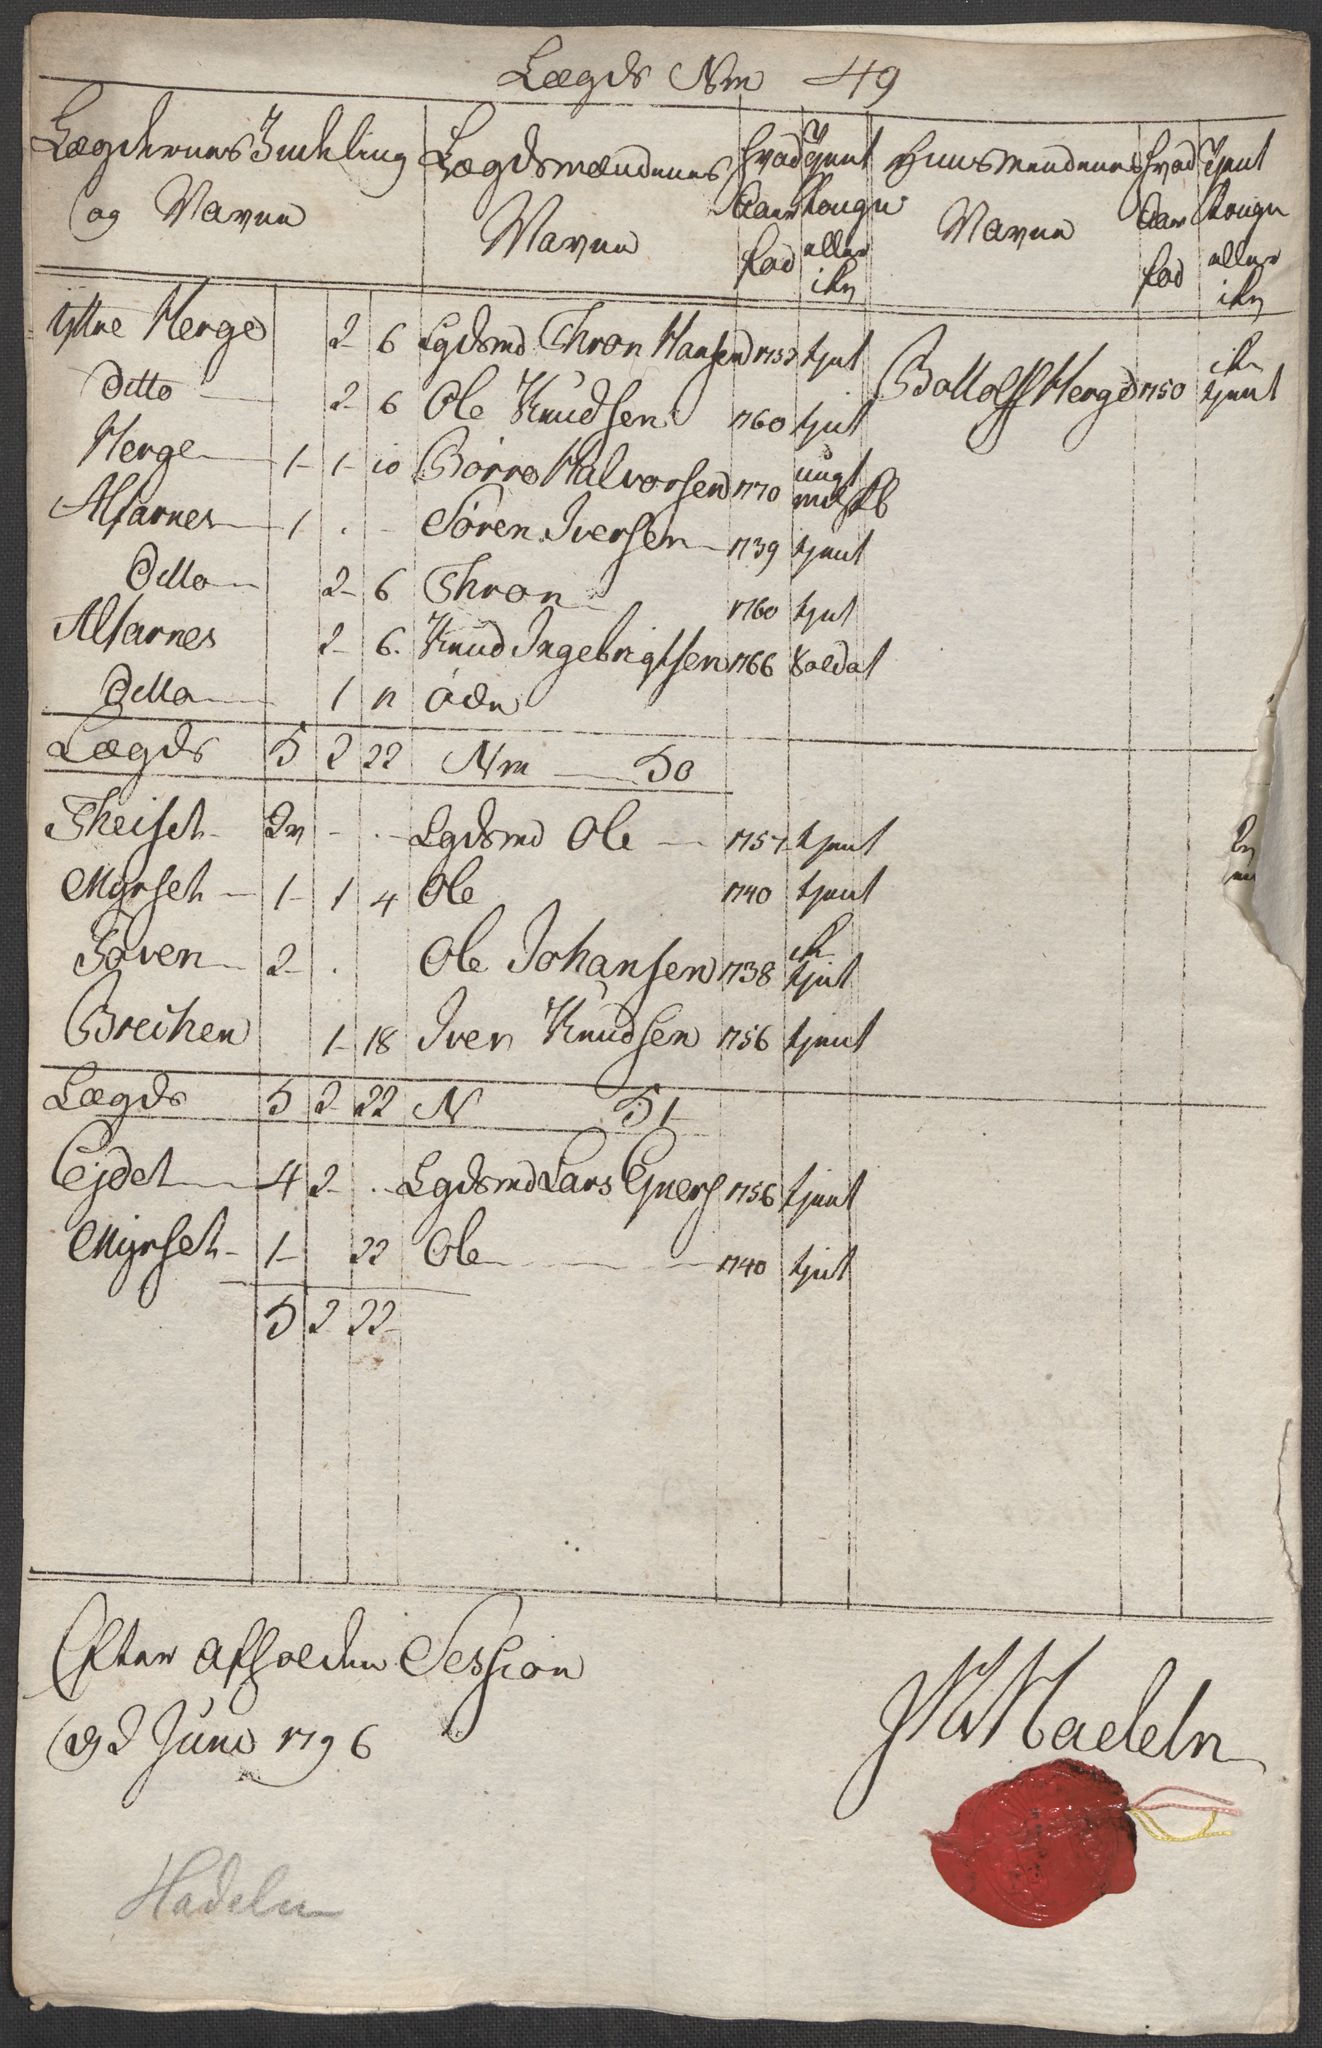 Lægds Nm 49
Lægdernes Indeling og Navne | Lægdsmændenes Navne | hvad Aar fød | Tjent Kongen eller ikke | Huusmendenes Navne | hvad Aar fød | Tjent Kongen eller ikke
Ytre Herge 2 6 Lgdsmd Thron Hansen tjent Bottolff Herge 1750 ik tjent
Ditto 2 6 Ole Knudsen 1760 tjent
Herge 1 1 10 Børre Halvorsen 1770
Alfarnes 1 . - Søren Iversen 1739 tjent
Ditto 2 6 Thron 1760 tjent
Alfarnes 2 6 Knud Ingebrigtsen 1766 Soldat
Ditto 1 12 øde
Lægds 5 2 22 Nm 50
Theiset - . - Lgdsmd Ole 1757 tjent
Myrset 1 1 4 Ole 1740 tjent
Toven 2 . Ole Johansen 1738 ik tjent
Breiken 1 18 Iver Knudsen 1756 tjent
Lægds 5 2 22 N 51
Ejdet 4 2 . Lgdsmd Lars Gjvers 1756 tjent
Myrset 1 22 Ole 1740 tjent
5 2 22
Efter afholden Session
d 2 Juni 1796
Hadeln
Hadeln